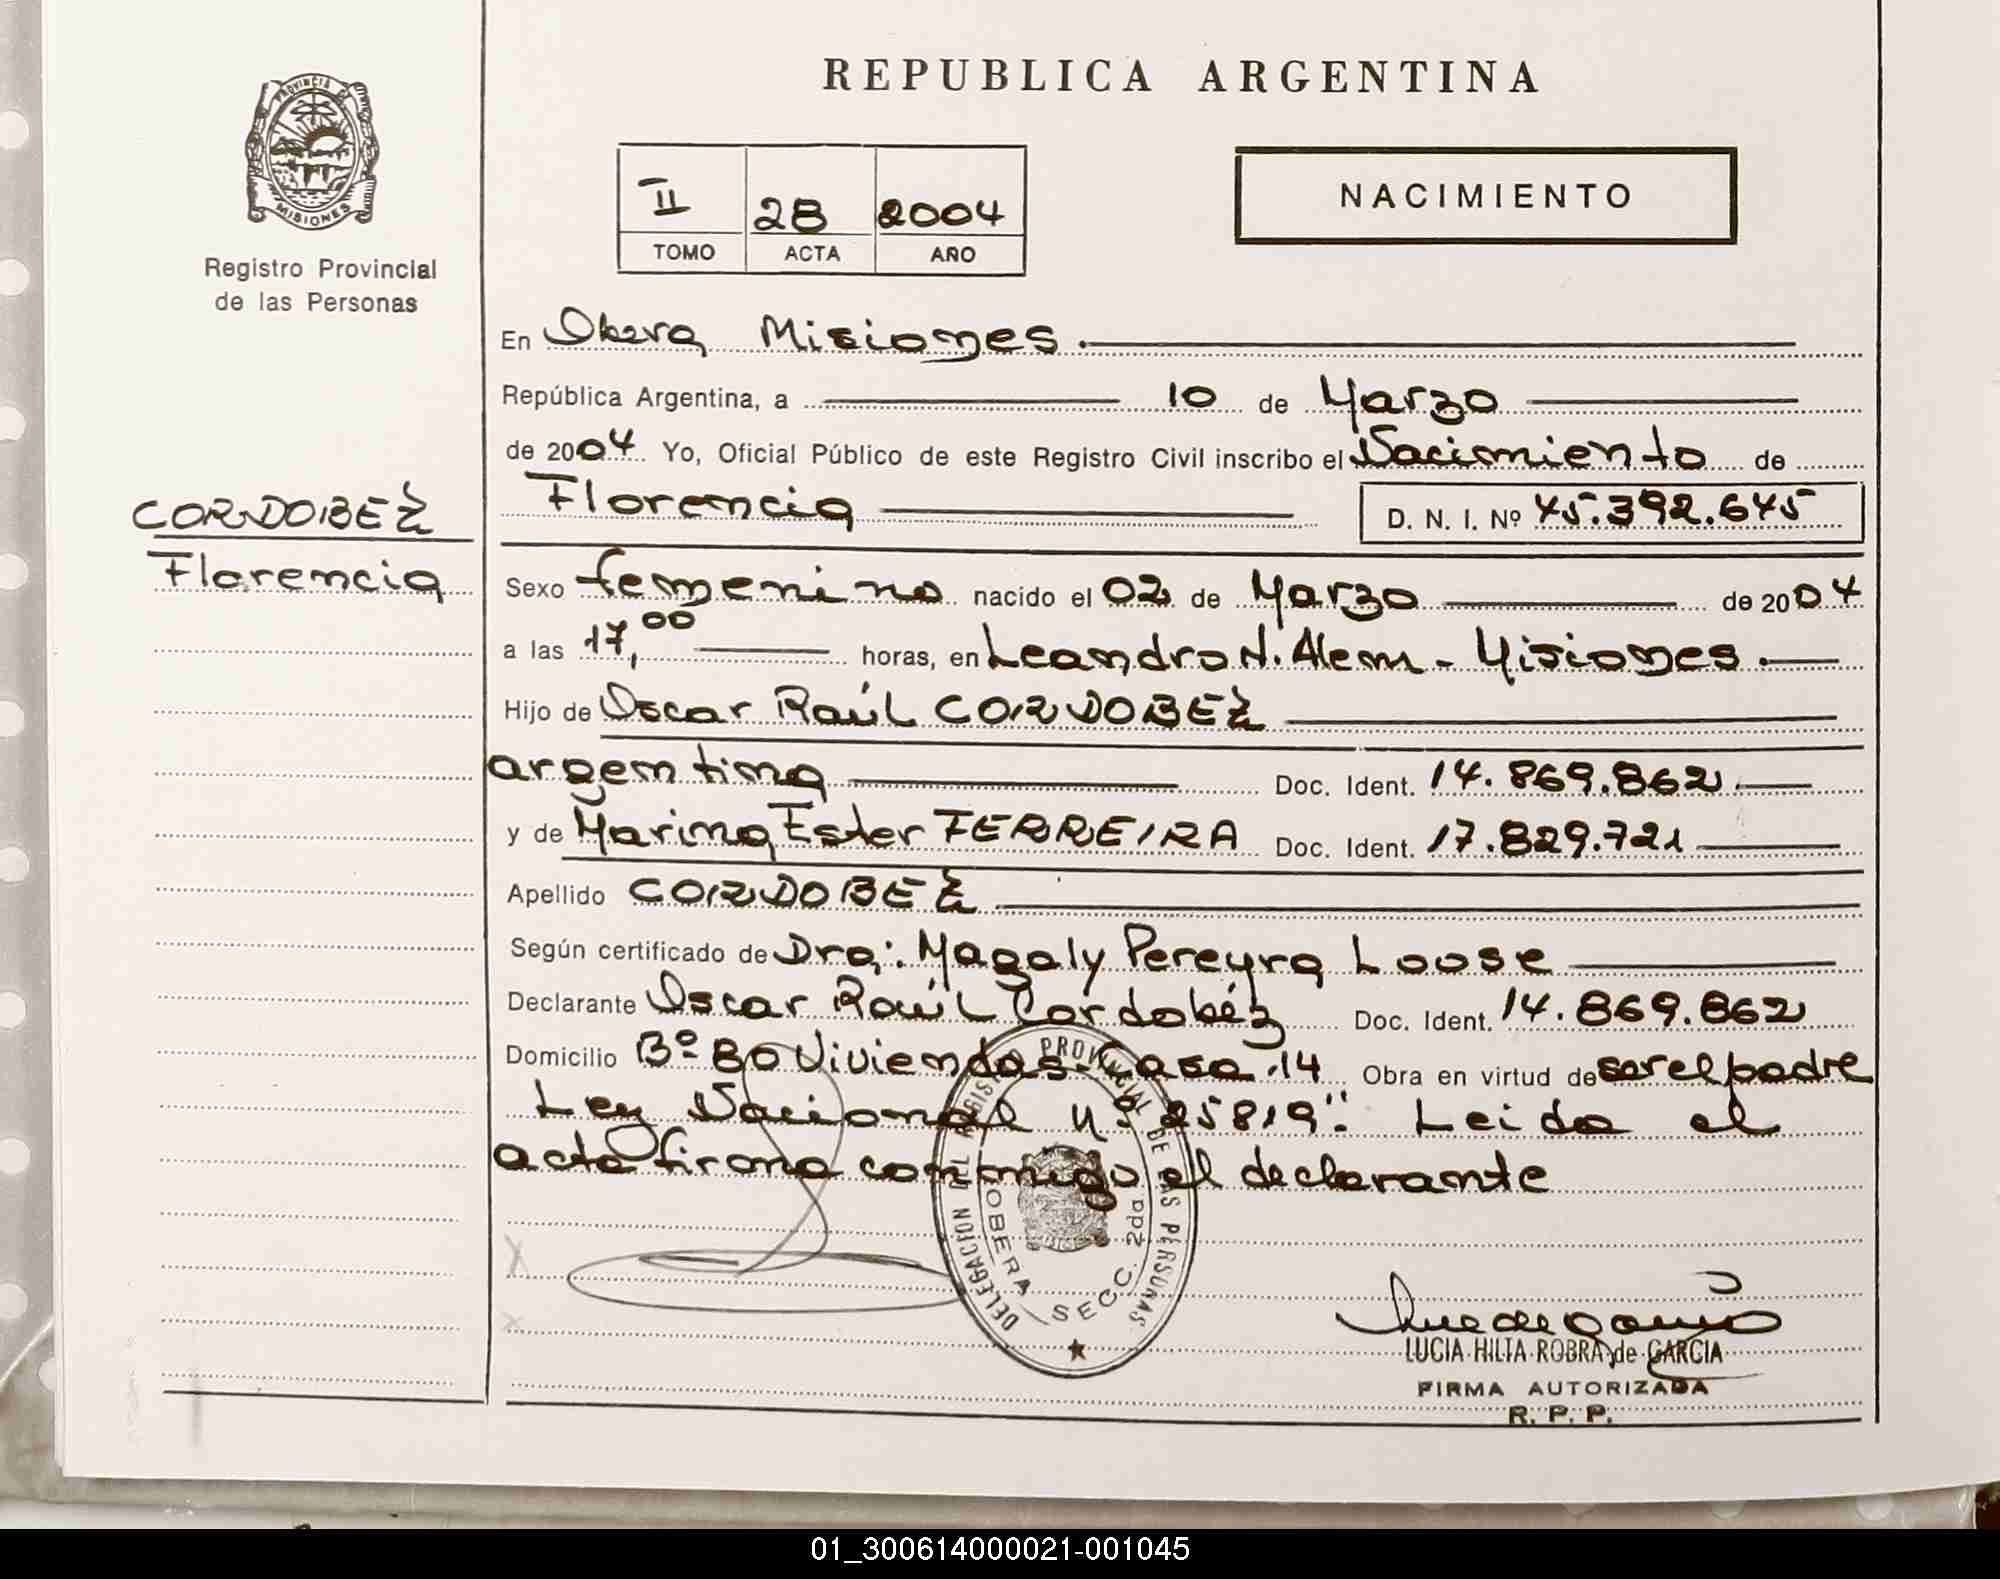 REPUBLICA ARGENTINA
PROVINCIA DE MISIONES
Registro Provincial
de las Personas
II 28 2004
TOMO ACTA AÑO
NACIMIENTO
En Obera Misiones.
República Argentina, a 10 de Marzo
de 2004 Yo, Oficial Público de este Registro Civil inscribo el Nacimiento de
Florencia D. N. I. Nº 45.392.645
CORDOBEZ
Florencia
Sexo femenino nacido el 02 de Marzo de 2004
a las 17,00 horas, en Leandro N. Alem - Misiones.
Hijo de Oscar Raúl CORDOBEZ
argentina Doc. Ident. 14.869.862
y de Marina Ester FERREIRA Doc. Ident. 17.829.721
Apellido CORDOBEZ
Según certificado de Dra. Magaly Pereyra Loose
Declarante Oscar Raúl Cordobéz Doc. Ident. 14.869.862
Domicilio Bº 80 Viviendas - Casa 14 Obra en virtud de ser el padre
Ley Nacional nº 25819" Leida el
acta firma conmigo el declarante
DELEGACION DEL REGISTRO PROVINCIAL DE LAS PERSONAS
OBERA SECC. 2da
LUCIA HILTA ROBRA de GARCIA
FIRMA AUTORIZADA
R. P. P.
01_300614000021-001045